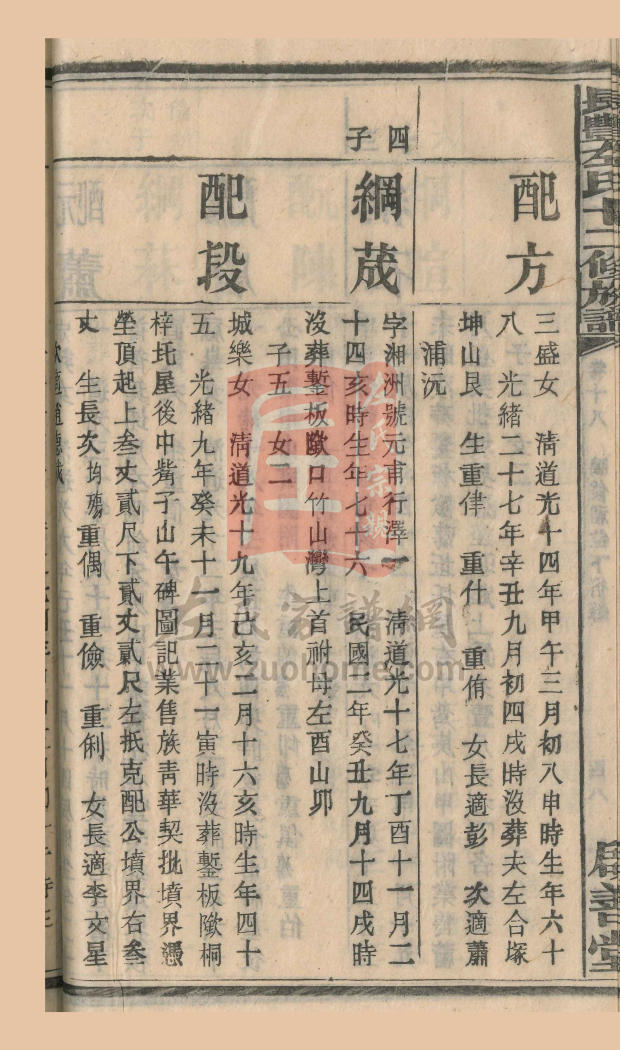 長豐左氏十二修族譜
配方
三盛女　清道光十四年甲午三月初八申時生年六十
八　光緒二十七年辛丑九月初四戌時沒葬夫左合塚
坤山艮　生重侓　重什　重侑　女長適彭　次適蕭
浦沅
四子
綱荿
字湘洲號元甫行澤一　清道光十七年丁酉十一月二
十四亥時生年七十六　民國二年癸丑九月十四戌時
沒葬鏨板歐口竹山灣上首祔母左酉山卯
子五　女二
配段
城樂女　清道光十九年己亥二月十六亥時生年四十
五　光緒九年癸未十一月二十一寅時沒葬鏨板歐桐
梓坵屋後中觜子山午碑圖記業售族靑華契批墳界憑
塋頂起上叁丈貳尺下貳丈貳尺左抵克配公墳界右叁
丈　生長次均殤重偶　重儉　重俐　女長適李文星
善堂
左氏家譜網
www.zuohome.com